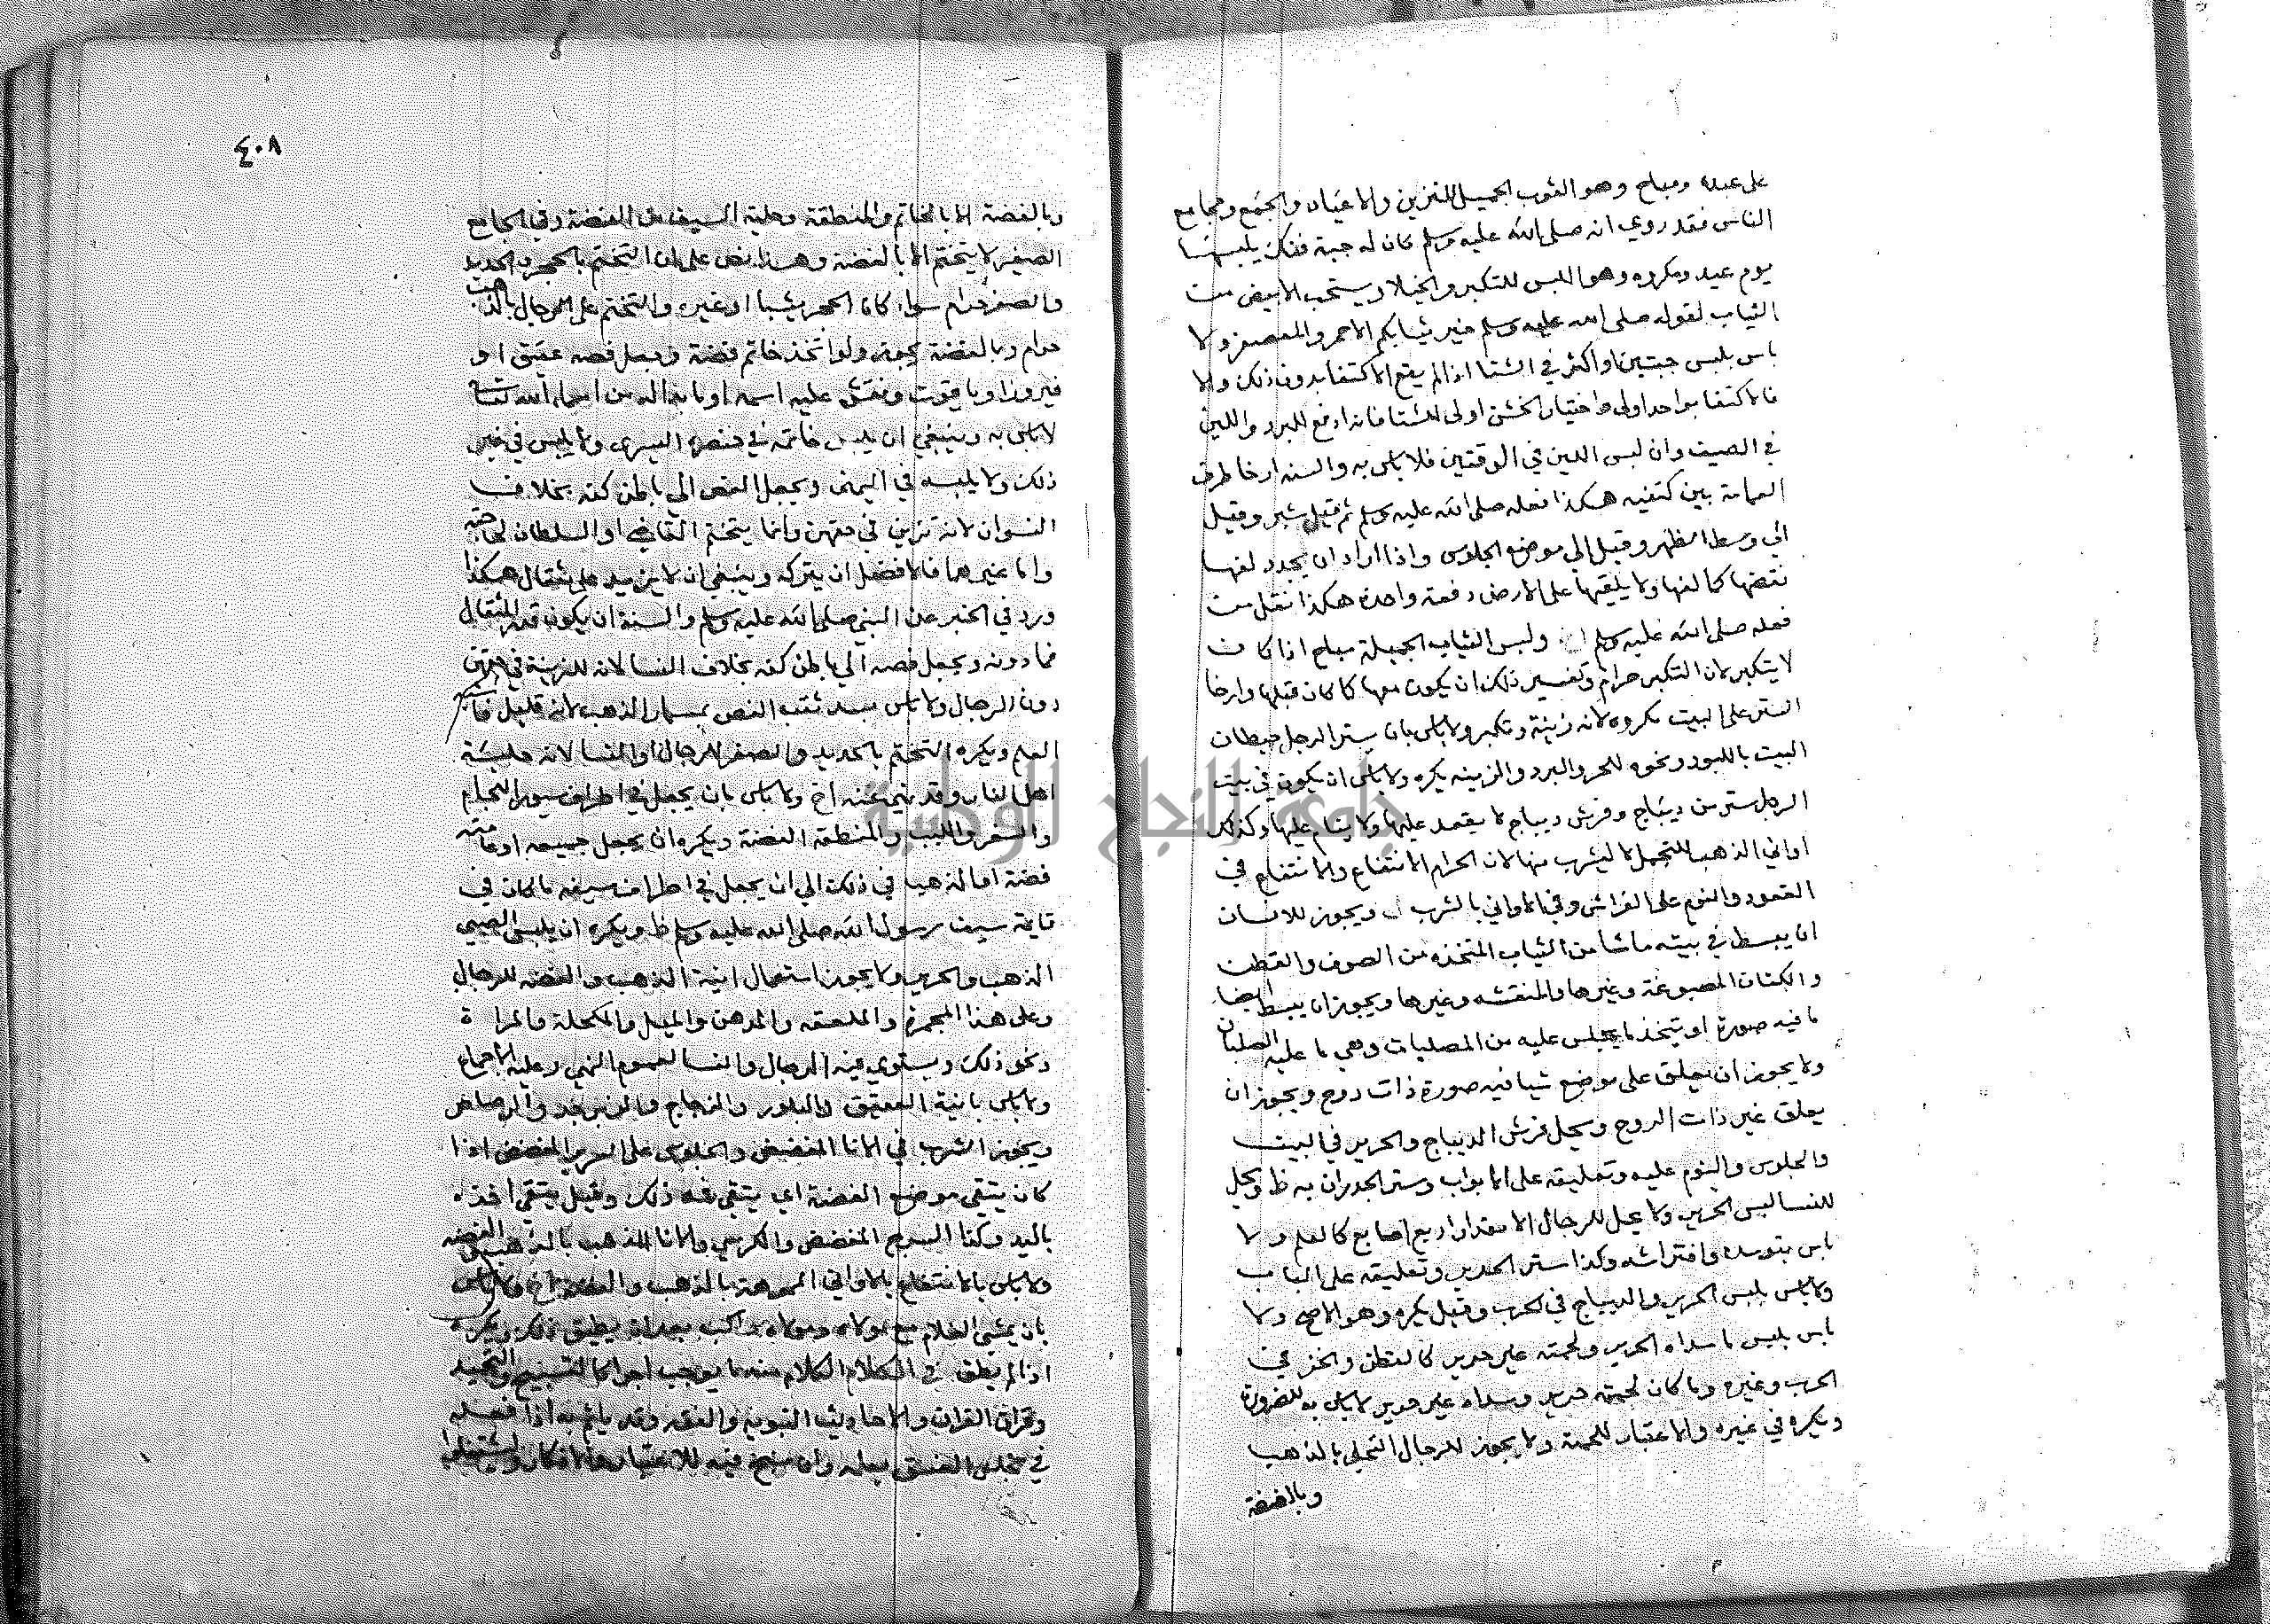 على عبده ومباح وهو الثوب الجميل للتزين والاعياد والجمع ومجامع
الناس فقد روي انه صلى الله عليه وسلم كان له جبة فنك يلبسها
يوم عيد ومكروه وهو اللبس للتكبر والخيلا ويستحب الابيض من
الثياب لقوله صلى الله عليه وسلم خير ثيابكم الاحمر والمعصفر ولا
باس بلبس جبتين او اكثر في الشتا اذا لم يقع الاكتفا بدون ذلك والا
فالاكتفا بواحد اولى واختيار الخشن اولى للشتا فانه ادفع للبرد واللين
في الصيف وان لبس اللين في الوقتين فلا باس به والسنه ارخا طرف
العمامة بين كتفيه هكذا فعله صلى الله عليه وسلم ثم قيل شبر وقيل
الي وسط الظهر وقيل الي موضع الجلوس واذا اراد ان يجدد لفها
نقضها كما لفها ولا يلقيها على الارض دفعة واحدة هكذا نقل من
فعله صلى الله عليه وسلم ولبس الثياب الجميلة مباح اذا كان
لا يتكبر لان التكبر حرام وتفسير ذلك ان يكون معها كما كان قبلها وارخا
الستر على البيت مكروه لانه زينة وتكبر ولا باس بان يستر الرجل حيطان
البيت باللبود ونحوه للحر والبرد والزينه يكره ولا باس ان يكون في بيت
الرجل ستر من ديباج وفرش ديباج لا يقعد عليها ولا ينام عليها وكذلك
اواني الذهب للتجمل لا ليشرب منها لان الحرام الانتفاع والانتفاع في
القعود والنوم على الفراش وفي الاواني بالشرب ويجوز للانسان
ان يبسط في بيته ما شا من الثياب المتخذه من الصوف والقطن
والكتان المصبوغة وغيرها والمنقشه وغيرها ويجوز ان يبسط ايضا
ما فيه صورة او يتخذ ما يجلس عليه من المصلبات وهي ما عليه الصلبان
ولا يجوز ان يعلق على موضع شيا فيه صورة ذات روح ويجوز ان
يعلق غير ذات الروح ويحل فرش الديباج والحرير في البيت
والجلوس والنوم عليه وتعليقه على الابواب وستر الجدران به ظ ويحل
للنسا لبس الحرير ولا يحل للرجال الا مقدار اربع اصابع كالعلم ولا
باس بتوسده وافتراشه وكذا ستر الحرير وتعليقه على الباب
ولا باس بلبس الحرير والديباج في الحرب وقيل يكره وهو الاصح ولا
باس بلبس ما سداه الحرير ولحمته غير حرير كالقطن والخز في
الحرب وغيره وما كان لحمته حرير وسداه غير حرير لا باس به للضرورة
ويكره في غيره والاعتبار للحمة ولا يجوز للرجال التحلي بالذهب
وبالفضة
٤٠٨
وبالفضة الا بالخاتم والمنطقة وحلية السيف من الفضة وفي الجامع
الصغير لا يتختم الا بالفضة وهذا نص على ان التختم بالحجر والحديد
والصفر حرام سوا كان الحجر يشبا او غيره والتختم على الرجال بالذهب
حرام وبالفضة يجوز ولو اتخذ خاتم فضة وجعل فصه عقيق او
فيروزا او ياقوت ونقش عليه اسمه او بدا له من اسماء الله تعالى
لا باس به وينبغي ان يلبس خاتمه في خنصره اليسرى ولا يلبس في غير
ذلك ولا يلبسه في اليمنى ويجعل الفص الي باطن كفه بخلاف
النسوان لانه تزين في حقهن وانما يتختم القاضي او السلطان لحاجته
واما غيرهما فالافضل ان يتركه وينبغي ان لا يزيد على مثقال هكذا
ورد في الخبر عن النبي صلى الله عليه وسلم والسنة ان يكون قدر المثقال
فما دونه ويجعل فصه الي باطن كفه بخلاف النسا لانه للزينة في حقهن
دون الرجال ولا باس بسد ثقب الفص بمسمار الذهب لانه قليل فاشبه
العلم ويكره التختم بالحديد والصفر للرجال والنسا لانه حلية
اهل النار وقد نهي عنه اخ ولا باس بان يجعل في اطراف سيور اللجام
والثفر واللبب والمنطقة الفضة ويكره ان يجعل جميعه او عامته
فضة اما الذهب في ذلك الي ان يجعل في اطراف سيفه ما كان في
قايمة سيف رسول الله صلى الله عليه وسلم ظ ويكره ان يلبس الصبي
الذهب والحرير ولا يجوز استعمال انية الذهب والفضه للرجال
وعلى هذا المجمرة والملعقه والمدهن والميل والمكحلة والمراة
ونحو ذلك ويستوي فيه الرجال والنسا لعموم النهي وعليه الاجماع
ولا باس بانية العقيق والبلور والزجاج والزبرجد والرصاص
ويجوز الشرب في الانا المفضض والجلوس على السرير المفضض اذا
كان يتقي موضع الفضة اي يتقي فمه ذلك وقيل يتقي اخذه
باليد وكذا السرج المفضض والكرسي والانا المذهب بالذهب والفضه
ولا باس بالانتفاع بالاواني المموهة بالذهب والفضة اخ ولا باس
بان يمشي الغلام مع مولاه ومولاه راكب بعد ان يطيق ذلك ويكره
اذا لم يطق في الكلام الكلام منه ما يوجب اجرا كالتسبيح والتحميد
وقراة القران والاحاديث النبويه والفقه وقد ياثم به اذا فعله
في مجلس الفسق يعلمه وان سبح فيه للاعتبار والانكار وليشتغلوا
جامعة النجاح الوطنية